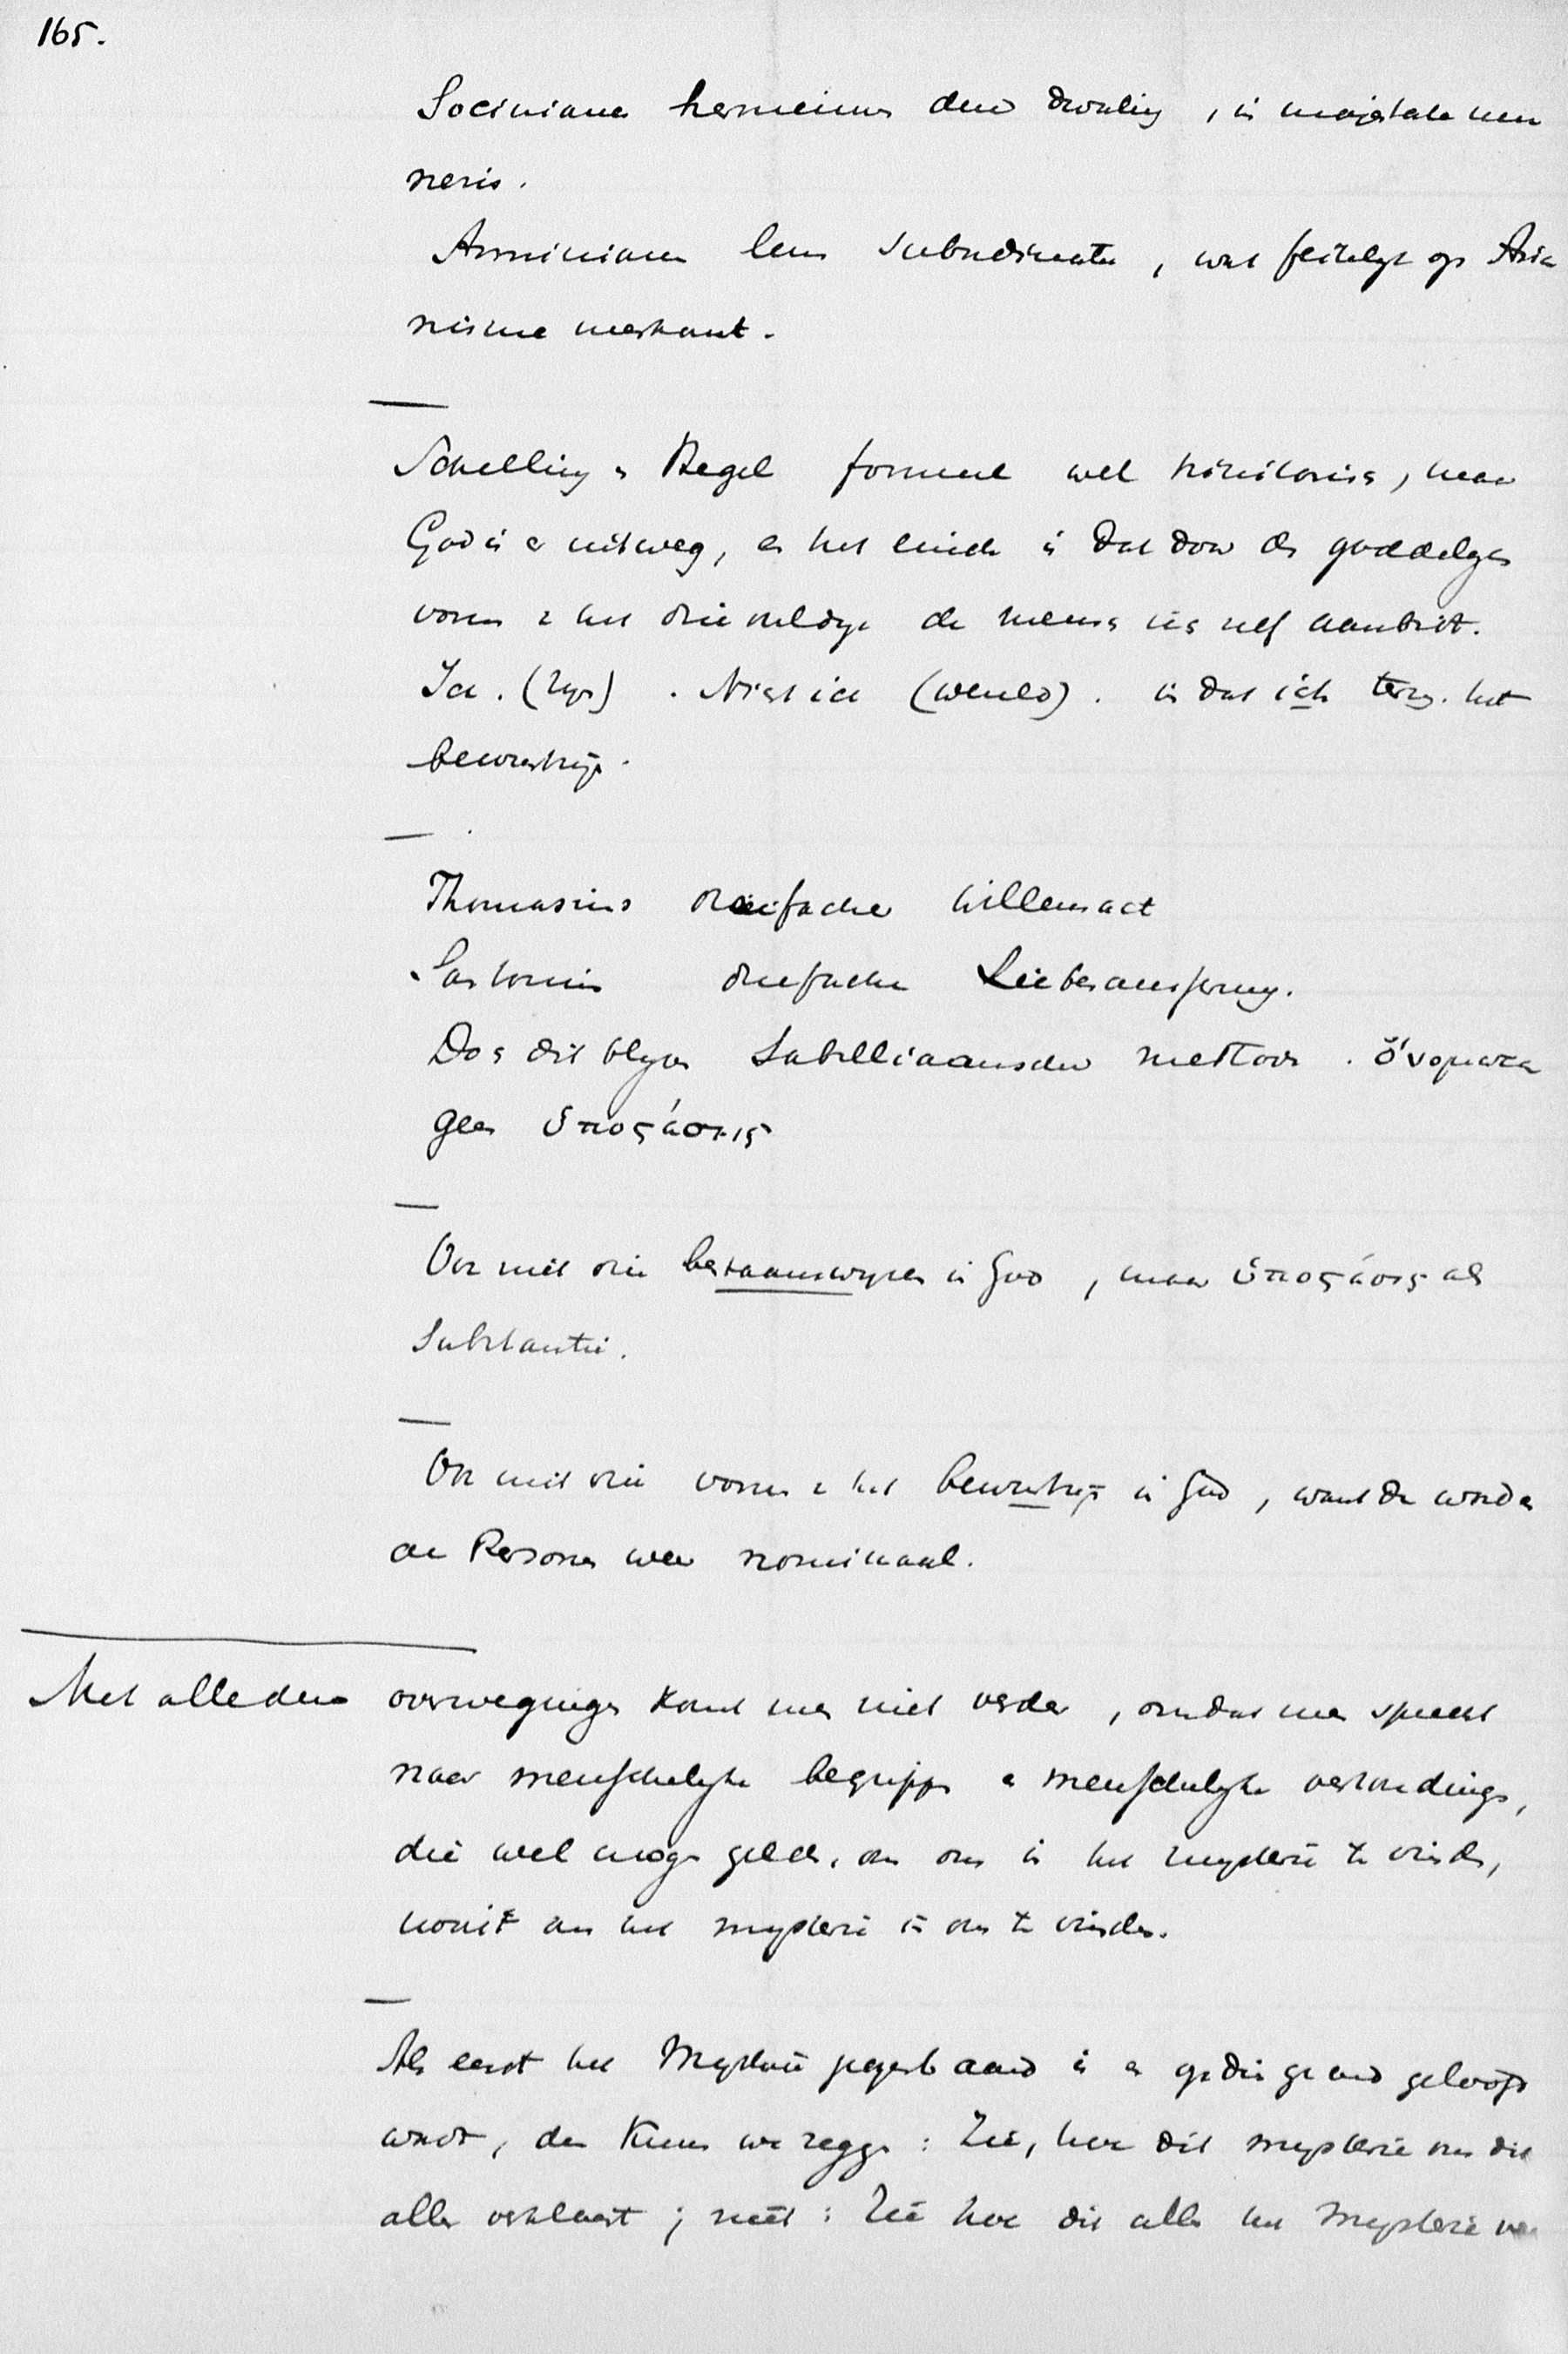 165.
Socinianen hernieuwen deze dwaling, in majestate mu
neris.
Arminianen leeren subordinatie, wat feitelijk op Aria
nisme neerkomt.
Schelling en Hegel formeel wel trinitarisch, maar
God is er uit weg, en het einde is dat door de goddelijke
vorm v het drievuldige de mensch zich zelf aanbidt.
Ich. (Zijn). Niet ich (wereld). is dat ich terug. het
bewustzijn.
Thomasius dreifacher Willensact
Sartorius dreifache Liebesäusserung.
Doch dit blijven Sabelliaansche metaphoren. ὀνόματα
geen ὑποςάσεις
Ook niet drie bestaanswijzen in God, maar ὑποςάσις als
Substantie.
Ook niet drie vormen v het bewustzijn in God, want dan worden
de Personen weer nominaal.
Met alle deze overwegingen komt men niet verder, omdat men spreekt
naar menschelijke begrippen en menschelijke verhoudingen,
die wel mogen gelden, om ons in het mysterie te vinden,
nooit om het mysterie in ons te vinden.
Als eerst het Mysterie geopenbaard is en op dien grond geloofd
wordt, dan kunnen we zeggen: Zie, hoe dit mysterie ons dit
alles verklaart; niet: Zie hoe dit alles het Mysterie ver